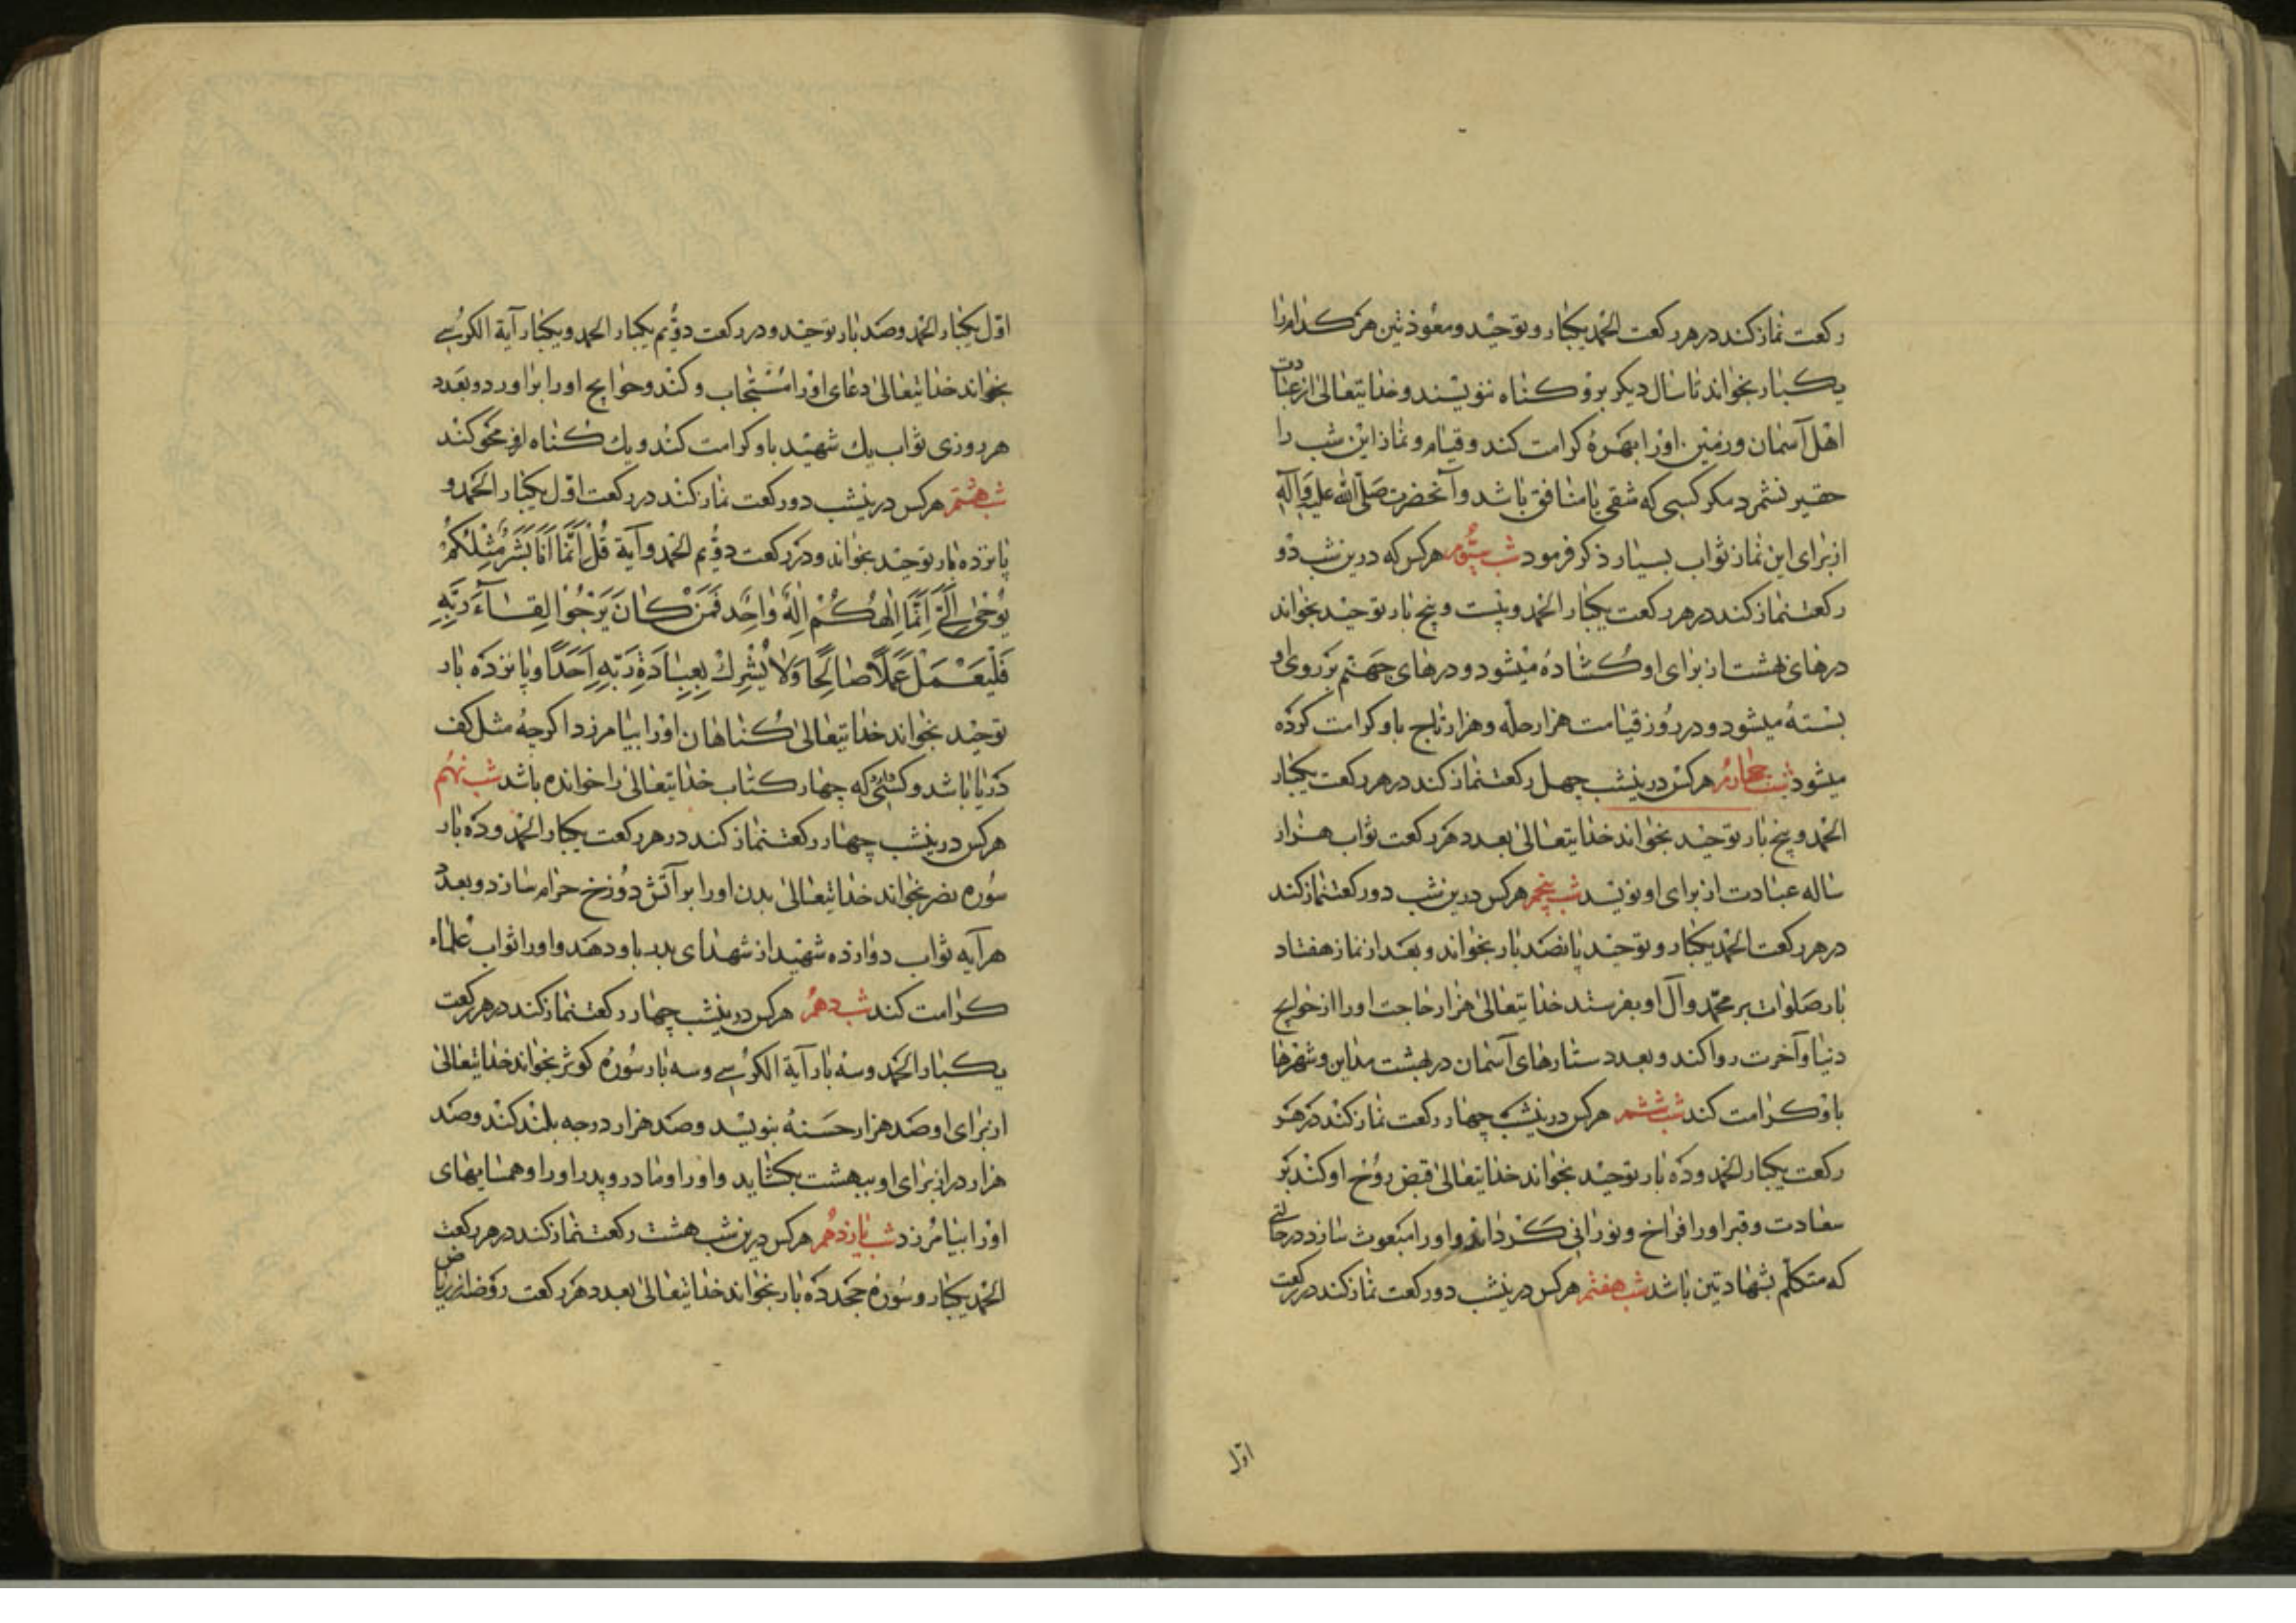 ركعت نماز كند در هر ركعت الحمد يكبار و توحيد و معوذتين هر كدام را
يكبار بخواند تا سال ديكر برو كناه ننويسند و خدا يتعالى از عبادت
اهل آسمان و زمين او را بهره كرامت كند و قيام و نماز اين شب را
حقير نشمرد مكر كسى كه شقى يا منافق باشد و آنحضرت صلى الله عليه وآله
از براى اين نماز ثواب بسيار ذكر فرمود شب سيّوم هر كس كه درين شب دو
ركعت نماز كند در هر ركعت يكبار الحمد و بيست و پنج بار توحيد بخواند
درهاى بهشت از براى او كشاده ميشود و درهاى جهنم بر روى او
بسته ميشود و در روز قيامت هزار حله و هزار تاج باو كرامت كرده
ميشود شب چهارم هر كس درينشب چهل ركعت نماز كند در هر ركعت يكبار
الحمد و پنج بار توحيد بخواند خدا يتعالى بعدد هر ركعت ثواب هزار
ساله عبادت از براى او نويسد شب پنجم هر كس درين شب دو ركعت نماز كند
در هر ركعت الحمد يكبار و توحيد پانصد بار بخواند و بعد از نماز هفتاد
بار صلوات بر محمد و آل او بفرستد خدا يتعالى هزار حاجت او را از حوايج
دنيا و آخرت روا كند و بعدد ستارهاى آسمان در بهشت مداين و شهرها
باو كرامت كند شب ششم هر كس درينشب چهار ركعت نماز كند در هر
ركعت يكبار الحمد و ده بار توحيد بخواند خدا يتعالى قبض روح او كند بر
سعادت و قبر او را فراخ و نورانى كرداند و او را مبعوث سازد در حالتى
كه متكلم بشهادتين باشد شب هفتم هر كس درينشب دو ركعت نماز كند در ركعت
اول
اوّل يكبار الحمد و صد بار توحيد و در ركعت دويّم يكبار الحمد و يكبار آية الكرسى
بخواند خدا يتعالى دعاى او را مستجاب و كند و حوايج او را براورد و بعدد
هر روزى ثواب يك شهيد باو كرامت كند و يك كناه او محو كند
شب هشتم هر كس درينشب دو ركعت نماز كند در ركعت اوّل يكبار الحمد و
پانزده بار توحيد بخواند و در ركعت دويّم الحمد و آية قُلْ اِنَّمَا اَنَا بَشَرٌ مِثْلُكُمْ
يُوحى اِلَىَّ اَنَّما اِلهُكُمْ اِلهٌ واحِدٌ فَمَنْ كانَ يَرْجُوا لِقاءَ رَبِّهِ
فَلْيَعْمَلْ عَمَلاً صالِحًا وَلا يُشْرِكْ بِعِبادَةِ رَبِّهِ اَحَدًا و پانزده بار
توحيد بخواند خدا يتعالى كناهان او را بيامرزد اكرچه مثل كف
دريا باشد و كسى كه چهار كتاب خدا يتعالى را خوانده باشد شب نهم
هر كس درينشب چهار ركعت نماز كند در هر ركعت يكبار الحمد و ده بار
سوره نصر بخواند خدا يتعالى بدن او را بر آتش دوزخ حرام سازد و بعدد
هر آيه ثواب دوازده شهيد از شهداى بدر باو دهد و او را ثواب علماء
كرامت كند شب دهم هر كس درينشب چهار ركعت نماز كند در هر ركعت
يكبار الحمد و سه بار آية الكرسى و سه بار سوره كوثر بخواند خدا يتعالى
از براى او صد هزار حسنه بنويسد و صد هزار درجه بلند كند و صد
هزار در از براى او ببهشت بكشايد و او را و مادر و پدر او را و همسايهاى
او را بيامرزد شب يازدهم هر كس درين شب هشت ركعت نماز كند در هر ركعت
الحمد يكبار و سوره جحد ده بار بخواند خدا يتعالى بعدد هر ركعت روضه از رياض